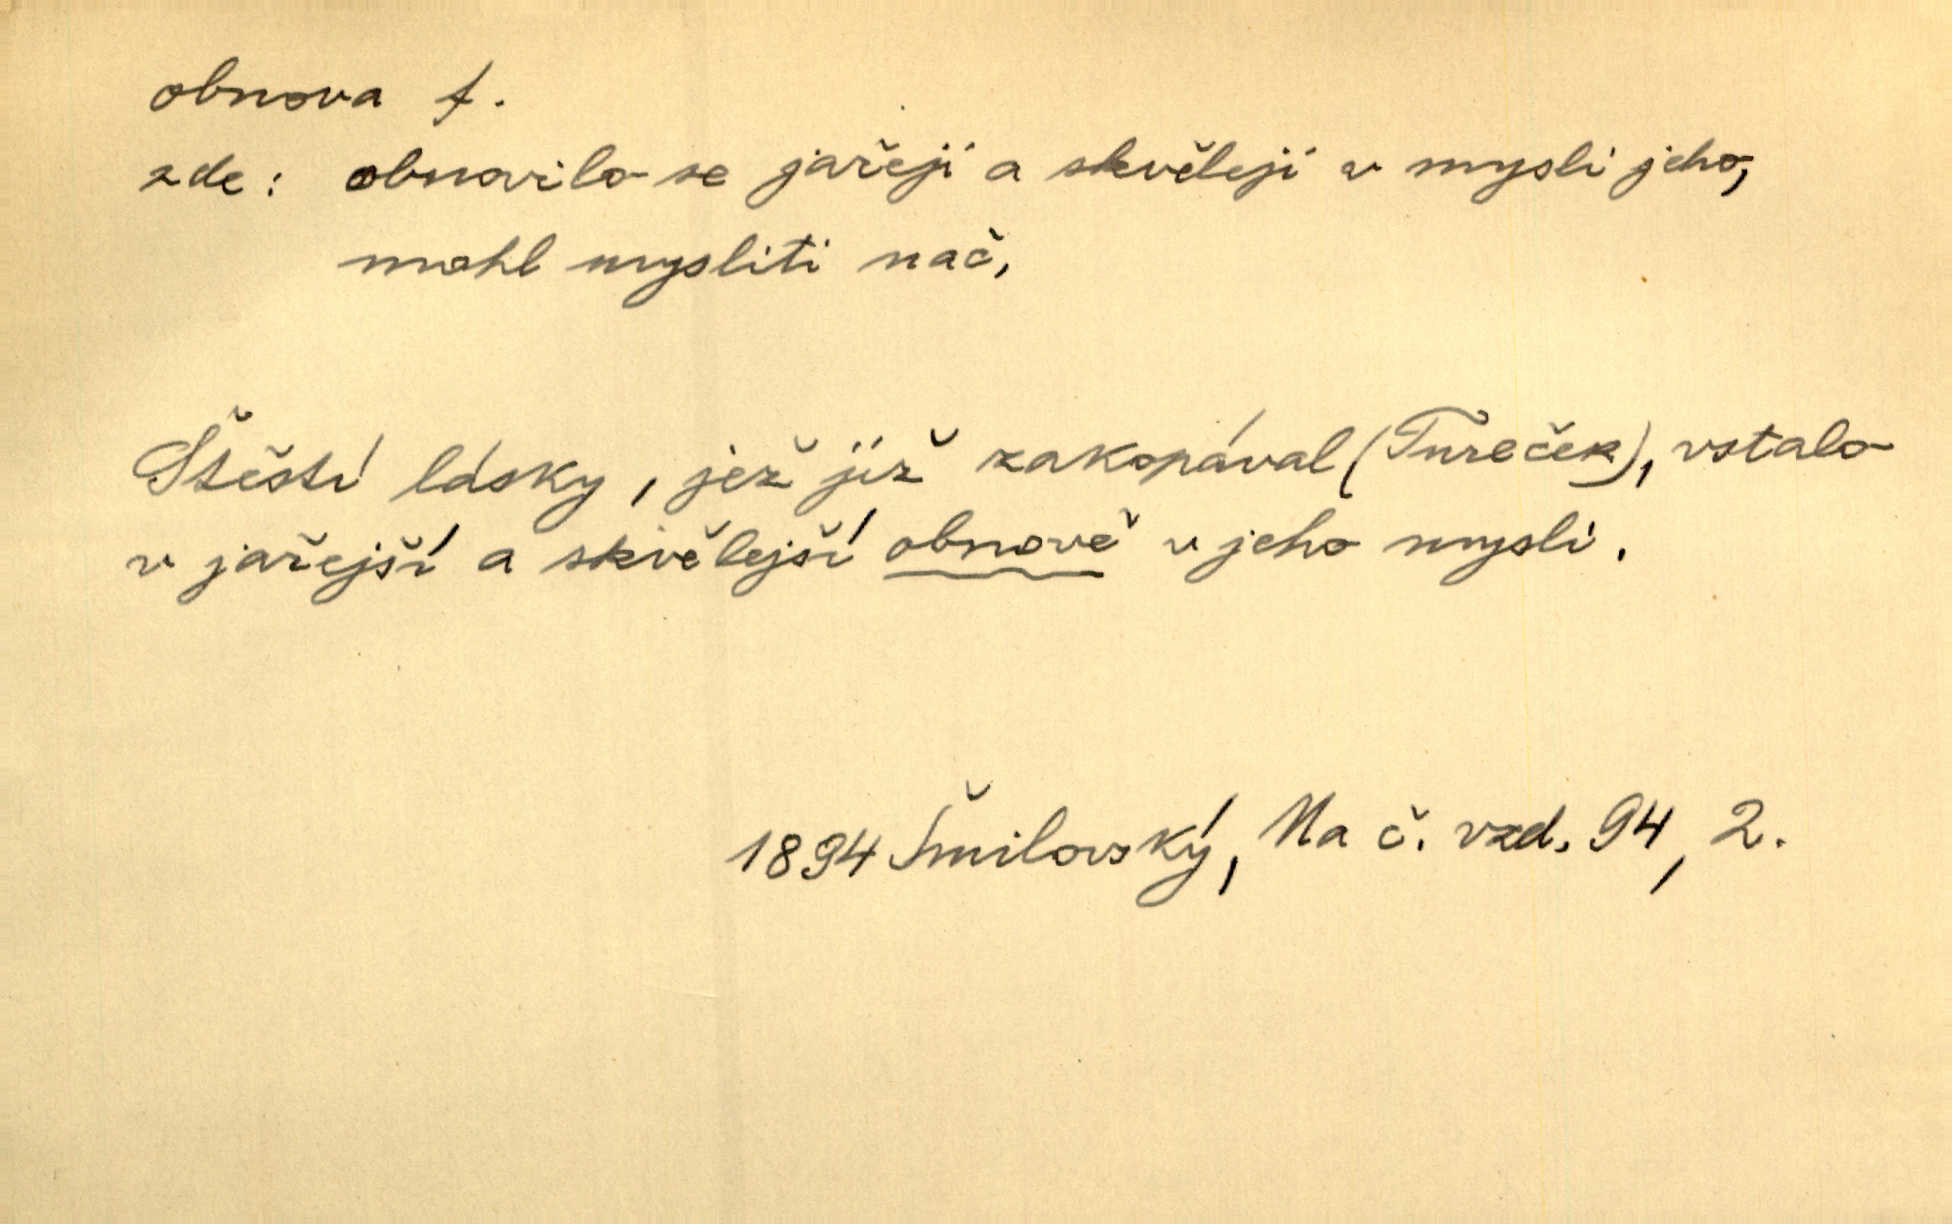 obnova f.
zde: obnovilo se jařeji a skvěleji v mysli jeho,
mohl mysliti nač,
Štěstí lásky, jež již zakopával (Tureček), vstalo
v jařejší a skvělejší obnově v jeho mysli.
1894 Šmilovský, Na č. vzd. 94, 2.